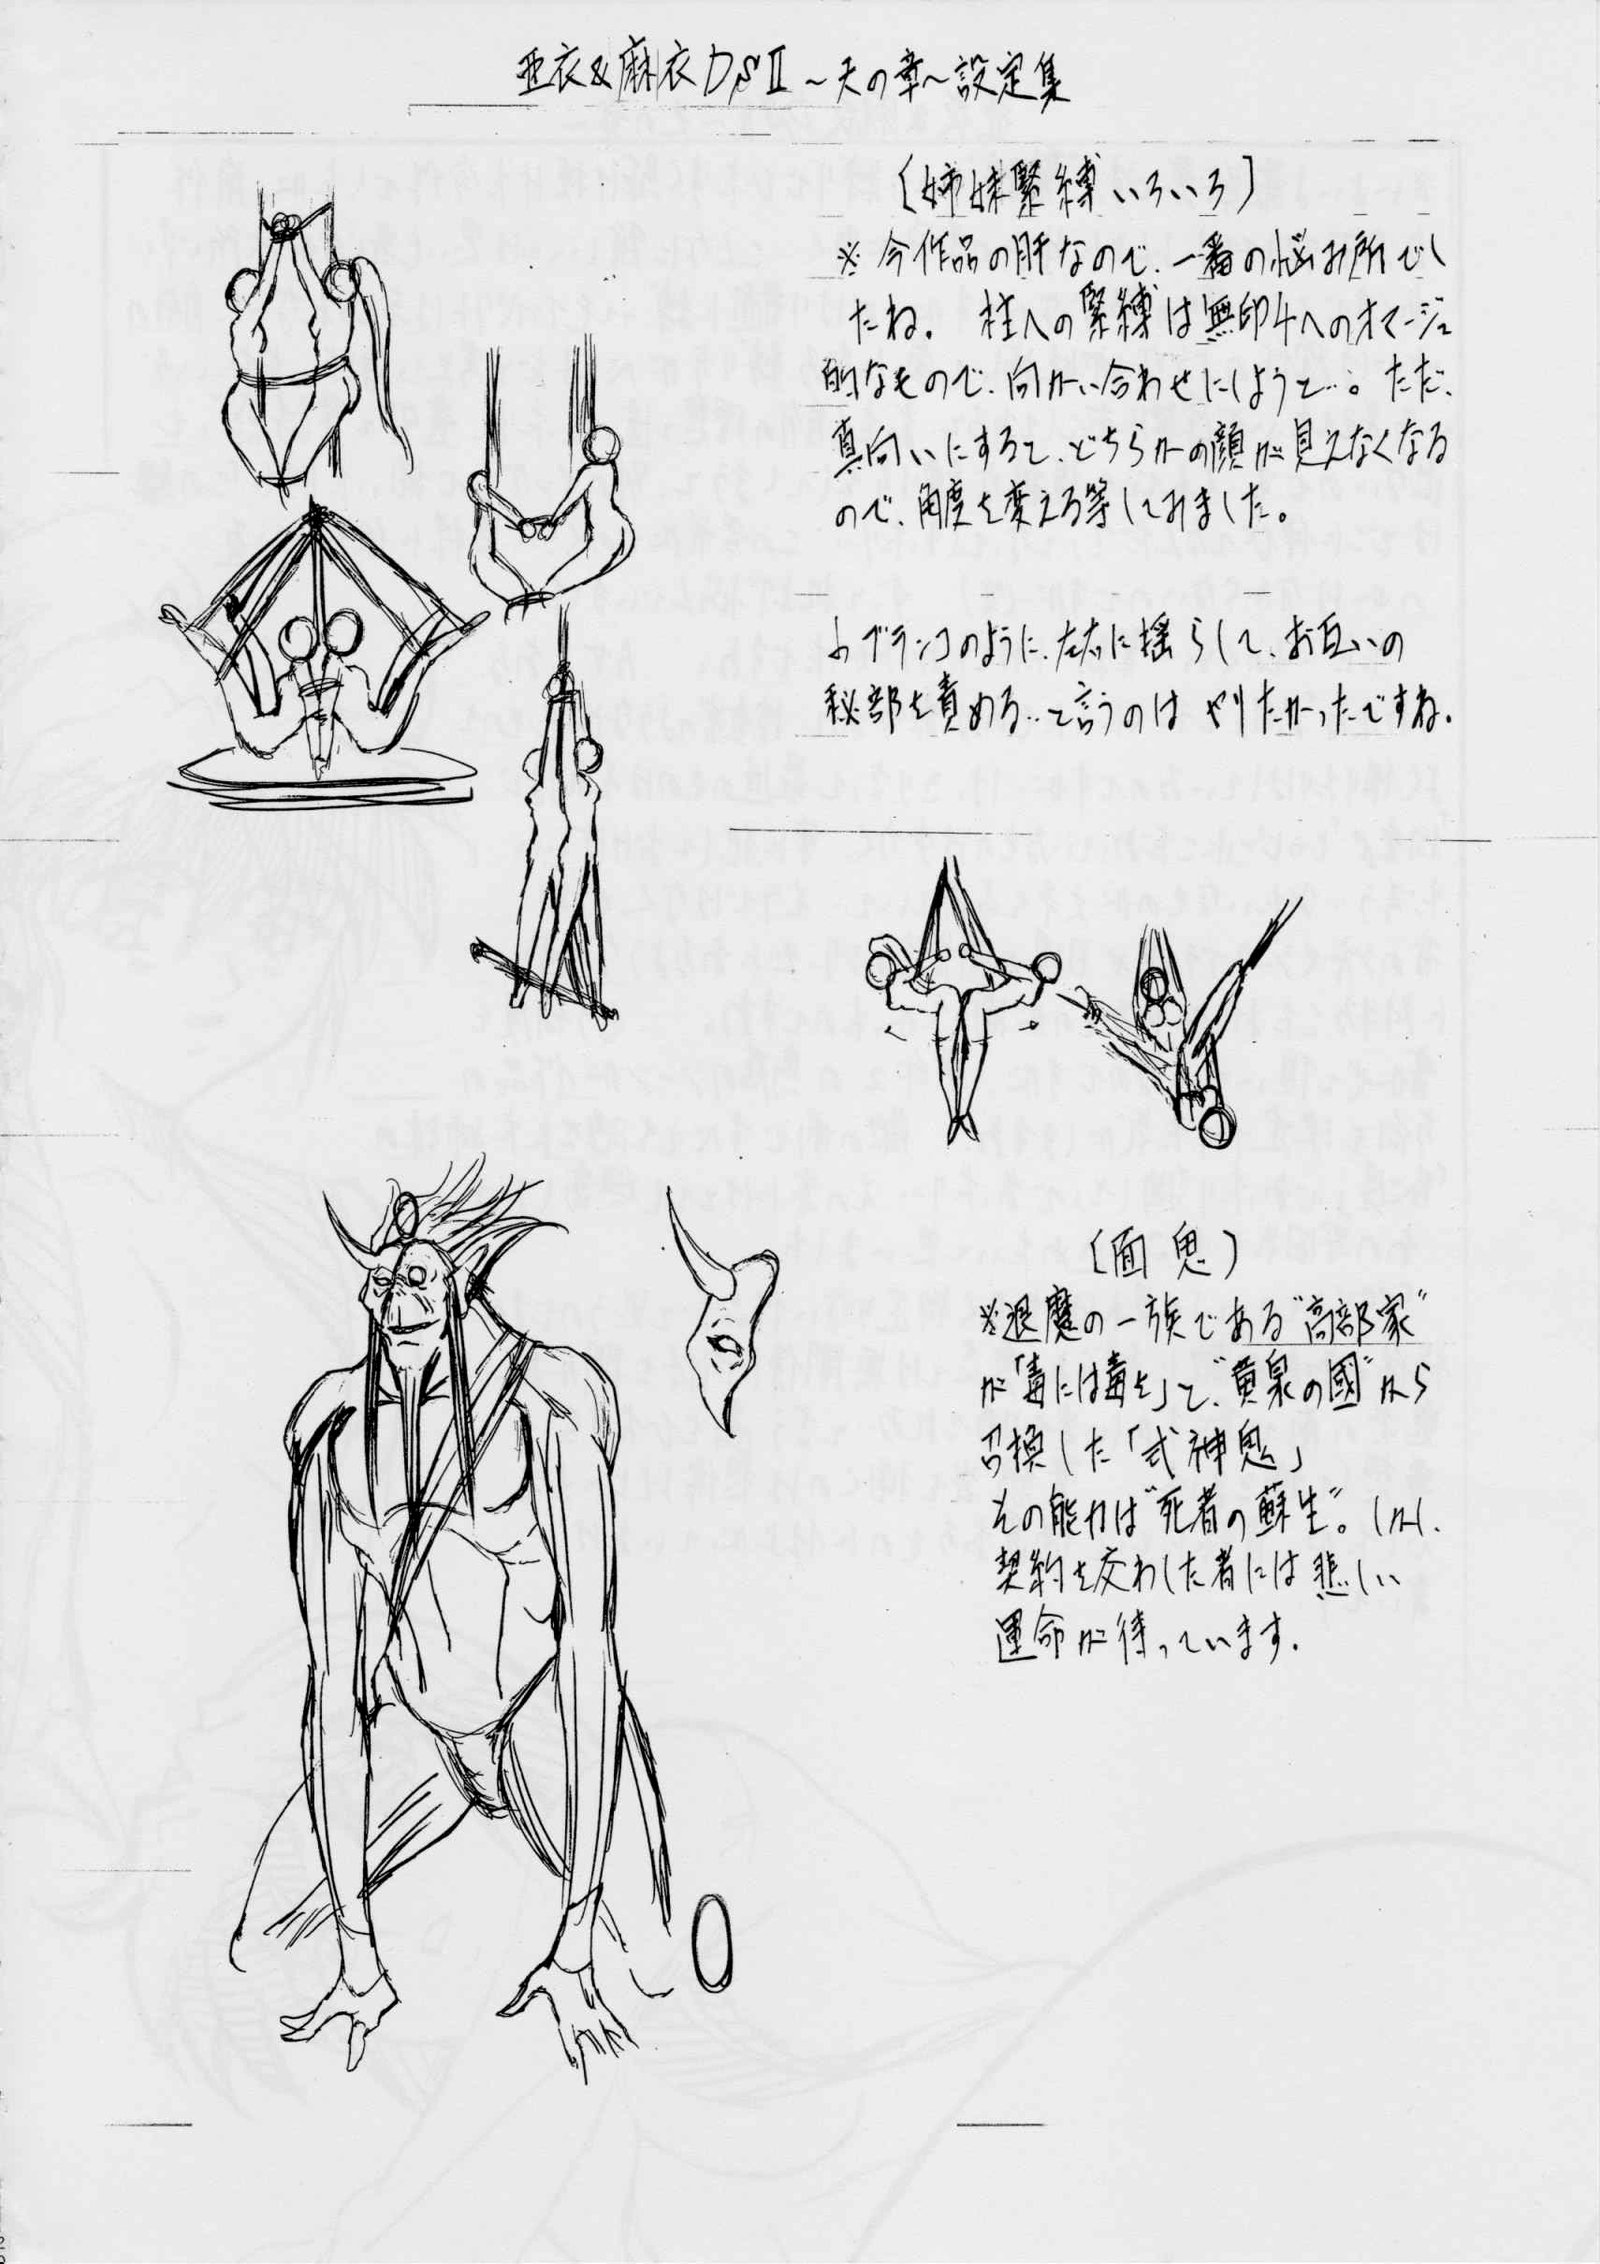 亜衣&麻衣DSⅡ～天の章～設定集
〔姉妹緊縛いろいろ〕
※今作品の肝なので、一番の悩み所でし
たね。柱への緊縛は無印4へのオマージュ
的なもので、向かい合わせにしようと…。ただ、
真向いにすると、どちらかの顔が見えなくなる
ので、角度を変える等してみました。
ブランコのように、左右に揺らして、お互いの
秘部を責める…と言うのはやりたかったですね。
〔面鬼〕
※退魔の一族である“高部家”
が「毒には毒を」と、“黄泉の國”から
召換した「式神鬼」
その能力は“死者の蘇生”。しかし、
契約を交わした者には悲しい
運命が待っています。